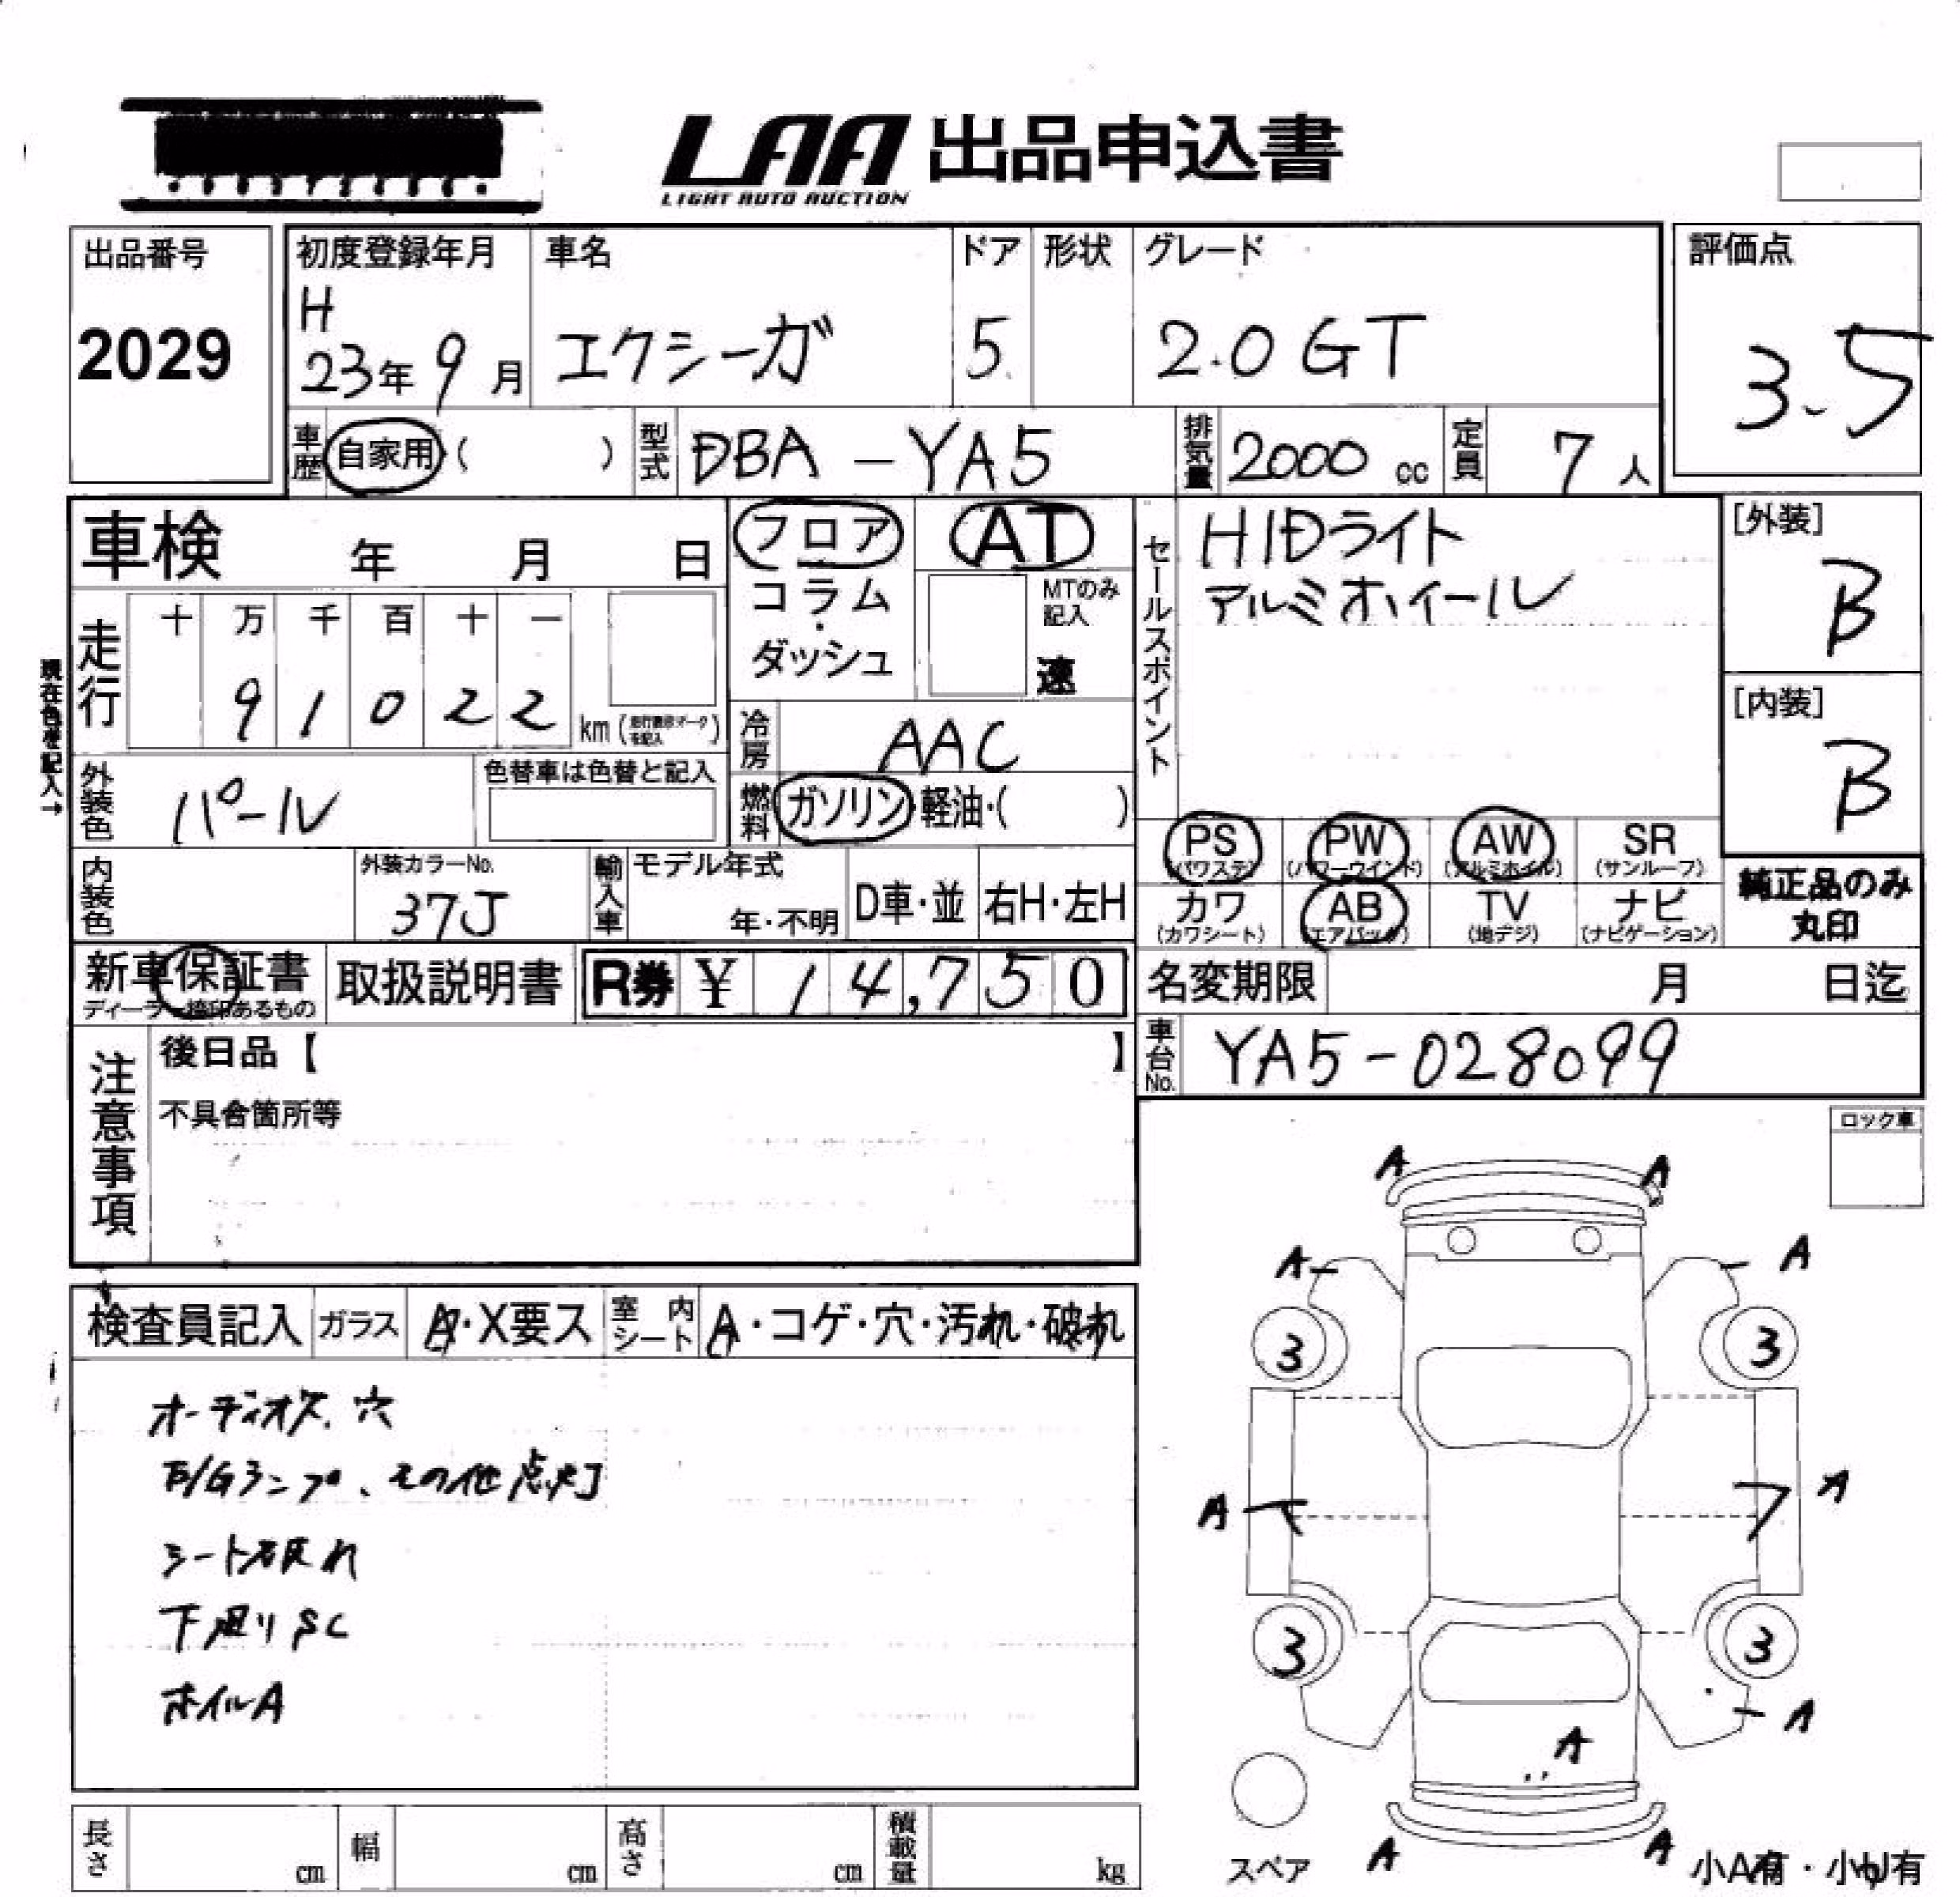 LAA 出品申込書
LIGHT AUTO AUCTION
出品番号
2029
初度登録年月
H
23年 9月
車名
エクシーガ
ドア
5
形状
グレード
2.0 GT
評価点
3.5
車歴 自家用 ( )
型式 DBA-YA5
排気量 2000 cc
定員 7 人
車検 年 月 日
フロア
コラム・
ダッシュ
AT
MTのみ
記入
速
セールスポイント
HIDライト
アルミホイール
[外装]
B
[内装]
B
現在色を記入→
走行
十 万 千 百 十 一
9 1 0 2 2
km
冷房 AAC
外装色 パール
色替車は色替と記入
燃料 ガソリン・軽油・( )
PS PW AW SR
(パワステ) (パワーウインド) (アルミホイル) (サンルーフ)
カワ AB TV ナビ
(カワシート) (エアバック) (地デジ) (ナビゲーション)
純正品のみ
丸印
内装色
外装カラーNo.
37J
輸入車
モデル年式
年・不明
D車・並
右H・左H
新車保証書
ディーラー捺印あるもの
取扱説明書
R券 ¥ 14,750
名変期限 月 日迄
車台No. YA5-028099
注意事項
後日品【 】
不具合箇所等
ロック車
検査員記入 ガラス A・X要ス
室内シート A・コゲ・穴・汚れ・破れ
オーディオ欠、穴
E/Gランプ、その他点灯
シート破れ
下廻りSC
ホイルA
A A
A A
3 3
A A
3 3
A
A
A A
スペア
小A有・小U有
長さ cm
幅 cm
高さ cm
積載量 kg